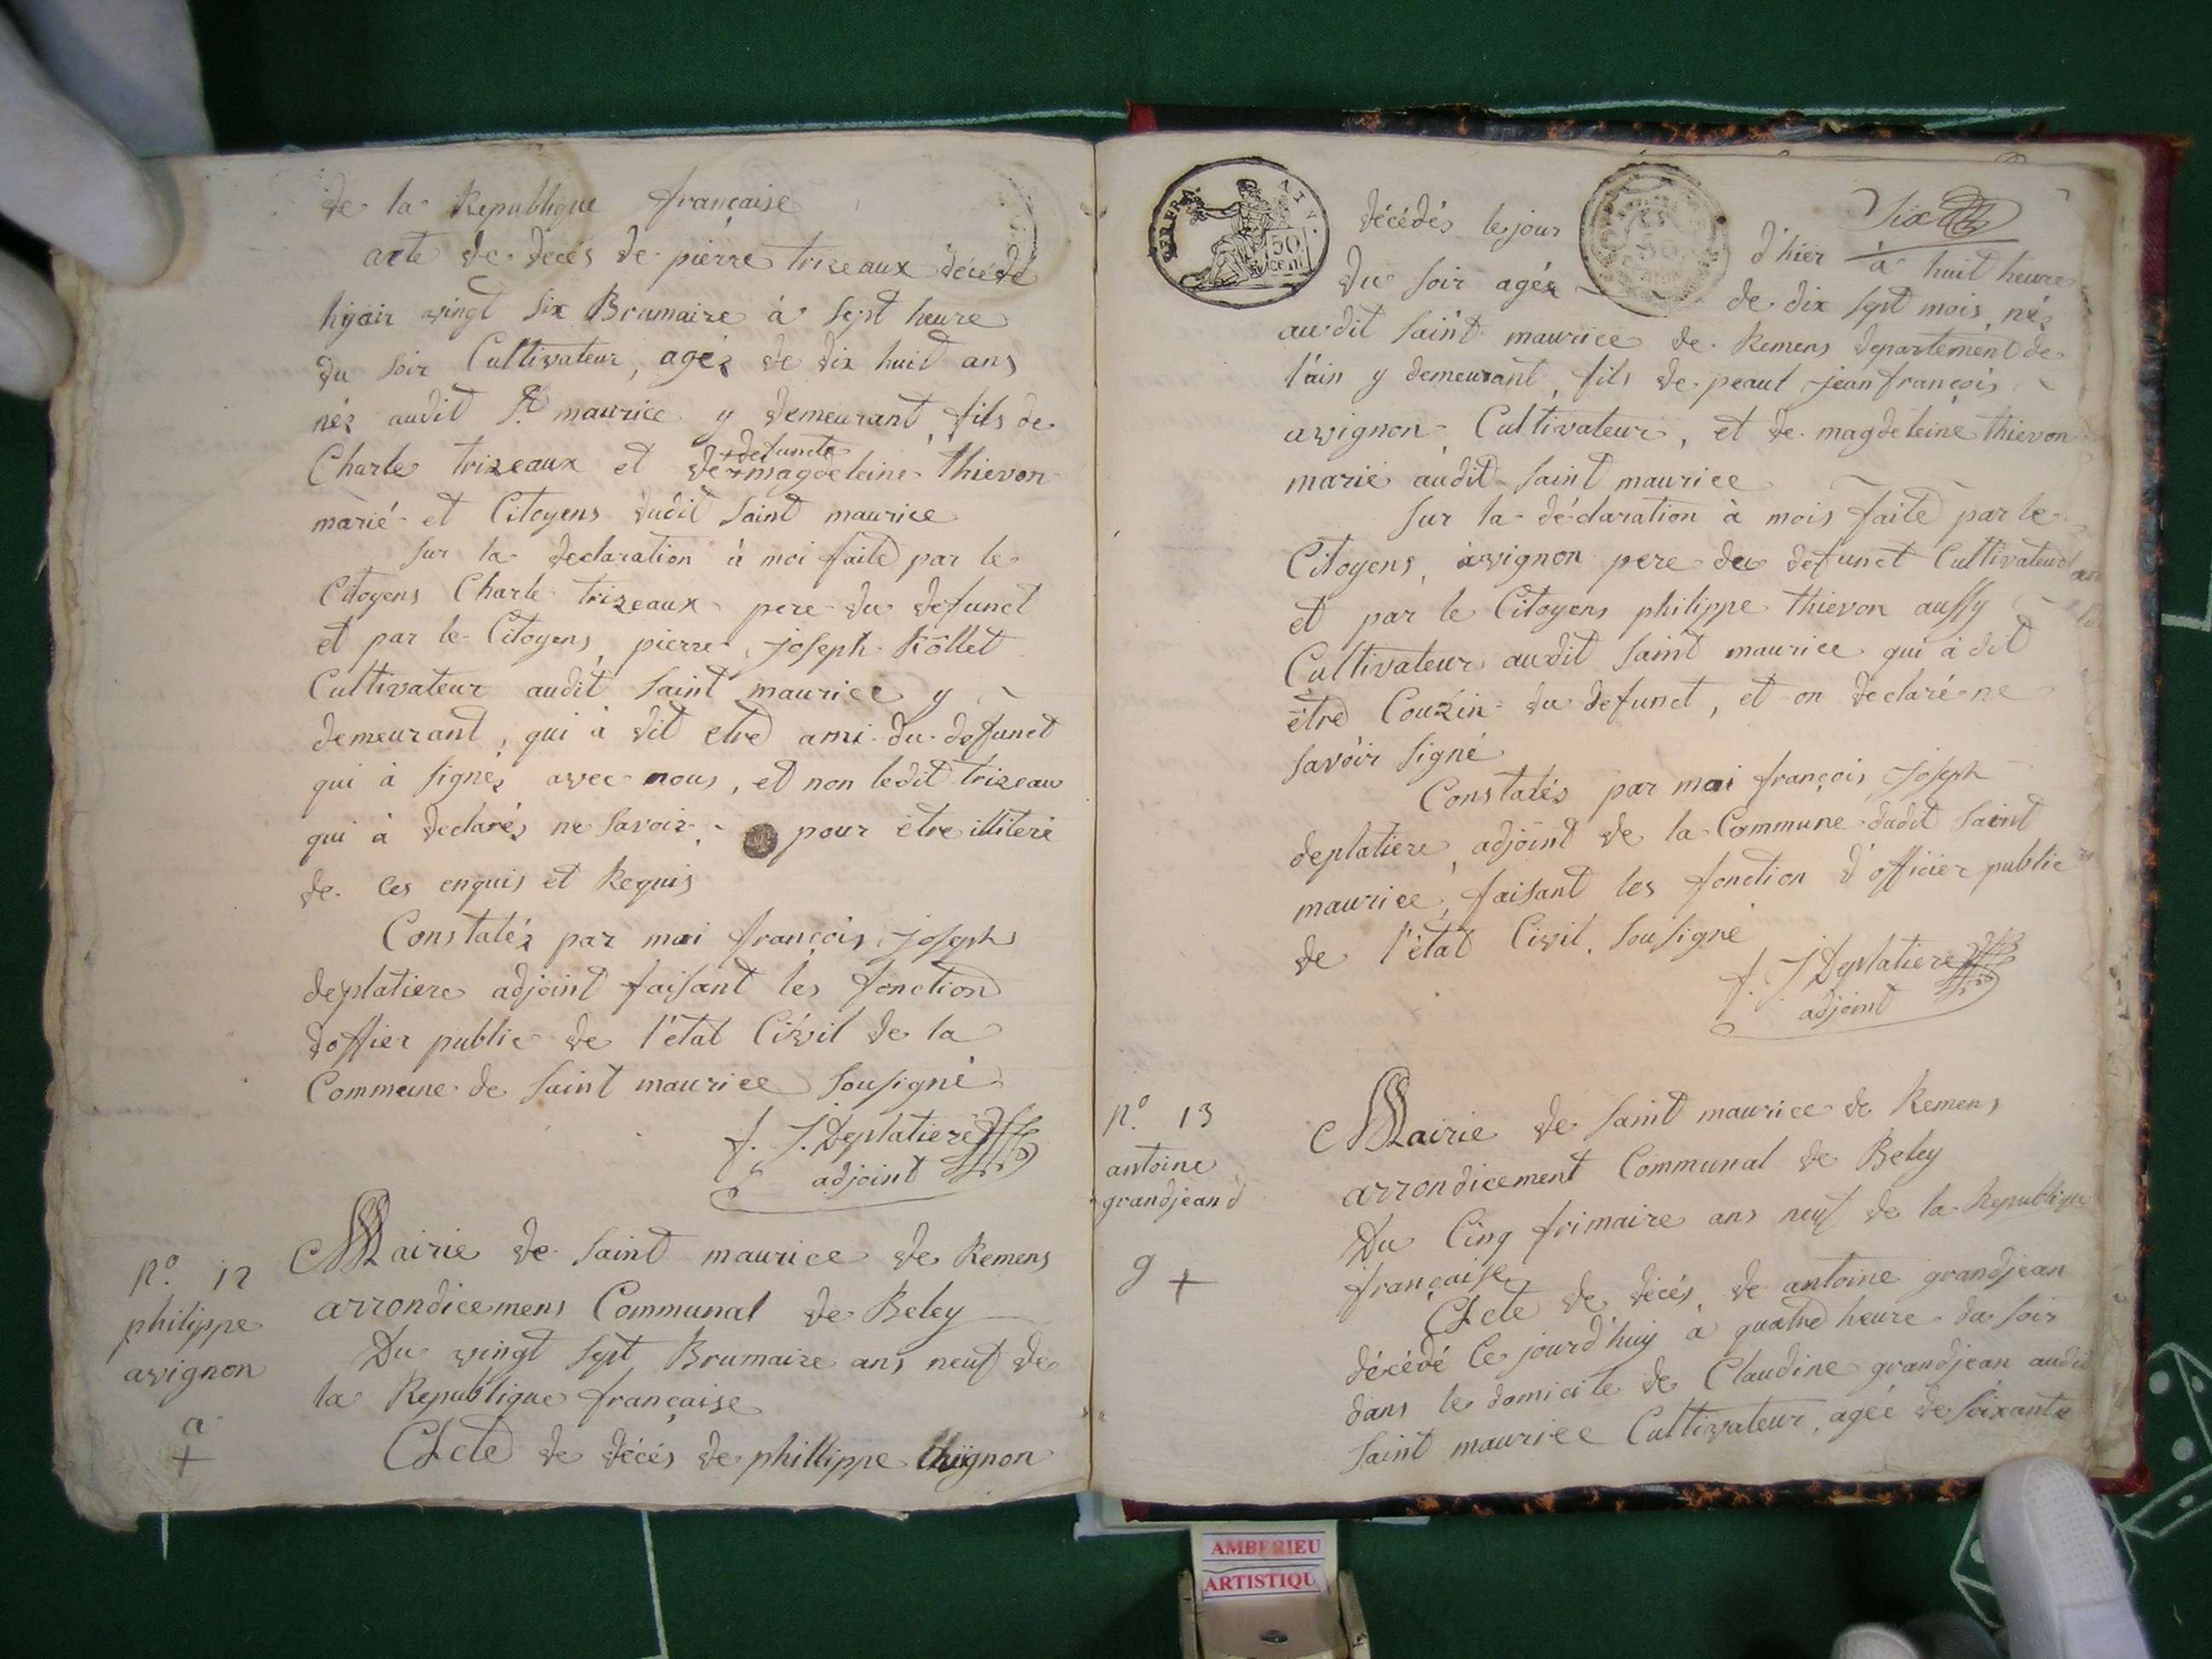 de la Republique française
acte de decés de pierre trizeaux décédé
hyair vingt six Brumaire à sept heure
du soir Cultivateur, agéz de dix huit ans
néz audit St maurice y demeurant, fils de
defuncte
Charle trizeaux et de magdeleine thievon
marié et Citoyens dudit saint maurice
sur la declaration à moi faite par le
Citoyens Charle trizeaux pere du defunct
et par le Citoyens, pierre joseph
Cultivateur audit saint maurice y
demeurant, qui à dit etre ami du defunct
qui à signéz avec nous, et non ledit trizeau
qui à declaréz ne savoir pour être illiteré
de ces enquis et Requis
Constatéz par moi françois joseph
deplatiere adjoint faisant les fonction
doffier public de l'état Civil de la
Commune de saint maurice sousigné
f. J. Deplatiere
adjoint
n.º 12
philippe
avignon
a
+
Mairie de saint maurice de Remens
arrondicemens Communal de Beley
Du vingt sept Brumaire ans neuf de
la Republique française
Acte de décés de phillippe
REP. FRA.
50
cent
six
décédés le jour d'hier à huit heure
du soir agéz de dix sept mois néz
au dit saint maurice de Remens departement de
l'ain y demeurant, fils de peaul jean françois
avignon Cultivateur, et de magdeleine thievon
marié audit saint maurice
sur la déclaration à mois faite par le
Citoyens, avignon pere du defunct Cultivateur
et par le Citoyens philippe thievon aussy
Cultivateur audit saint maurice qui à dit
être Couzin du defunct, et on declaré ne
savoir signé
Constatéz par moi françois joseph
deplatiere, adjoint de la Commune dudit saint
maurice, faisant les fonction d'officier public
de l'état Civil, sousigné
f. J Deplatiere
adjoint
n.º 13
antoine
grandjean d
g +
Mairie de saint maurice de Remens
arrondicement Communal de Beley
Du Cinq frimaire ans neuf de la Republique
française
Acte de décés de antoine grandjean
décédé ce jourd'huy a quatre heure du soir
dans le domicile de Claudine grandjean audit
saint maurice Cultivateur, agéé de soixante
AMBERIEU
ARTISTIQU